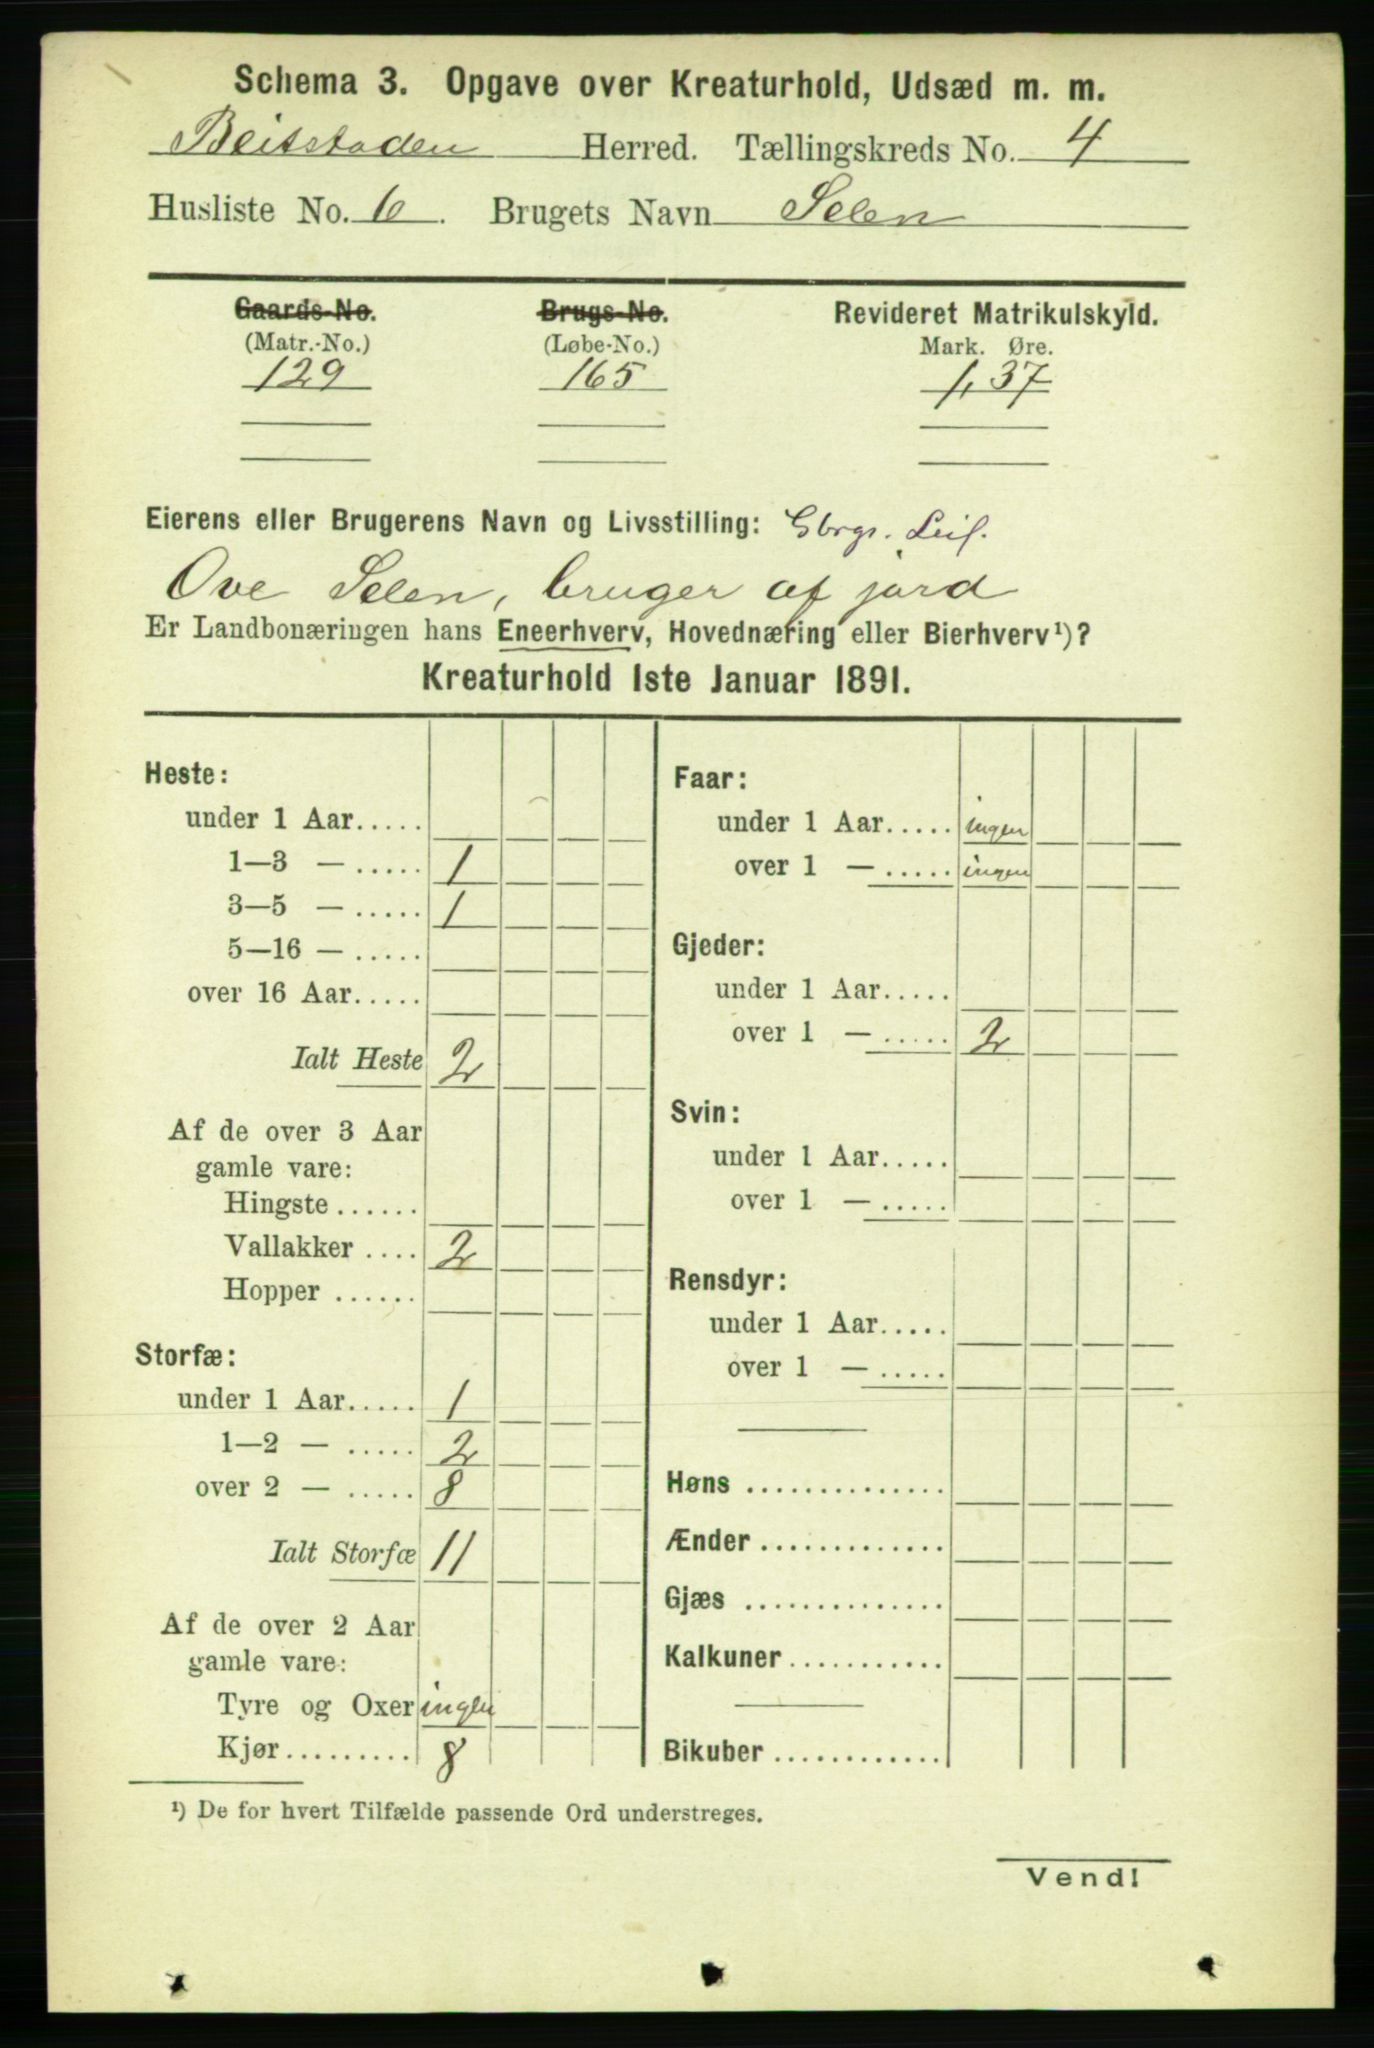 Schema 3. Opgave over Kreaturhold, Udsæd m. m.
Beitstaden Herred. Tællingskreds No. 4
Husliste No. 6. Brugets Navn Selen
Gaards-No. Brugs-No. Revideret Matrikulskyld.
(Matr.-No.) (Løbe-No.) Mark. Øre.
129 165 1,37
Eierens eller Brugerens Navn og Livsstilling: Gbrgr. Leil.
Ove Selen, bruger af jord
Er Landbonæringen hans Eneerhverv, Hovednæring eller Bierhverv¹)?
Kreaturhold 1ste Januar 1891.
Heste:
under 1 Aar.....
1—3 — ..... 1
3—5 — ..... 1
5—16 — .....
over 16 Aar.....
Ialt Heste 2
Af de over 3 Aar
gamle vare:
Hingste ......
Vallakker .... 2
Hopper ......
Storfæ:
under 1 Aar..... 1
1—2 — ..... 2
over 2 — ..... 8
Ialt Storfæ 11
Af de over 2 Aar
gamle vare:
Tyre og Oxer ingen
Kjør......... 8
Faar:
under 1 Aar..... ingen
over 1 — ..... ingen
Gjeder:
under 1 Aar.....
over 1 — ..... 2
Svin:
under 1 Aar.....
over 1 — .....
Rensdyr:
under 1 Aar.....
over 1 — .....
Høns ..............
Ænder .............
Gjæs ..............
Kalkuner...........
Bikuber ............
¹) De for hvert Tilfælde passende Ord understreges.
Vend!